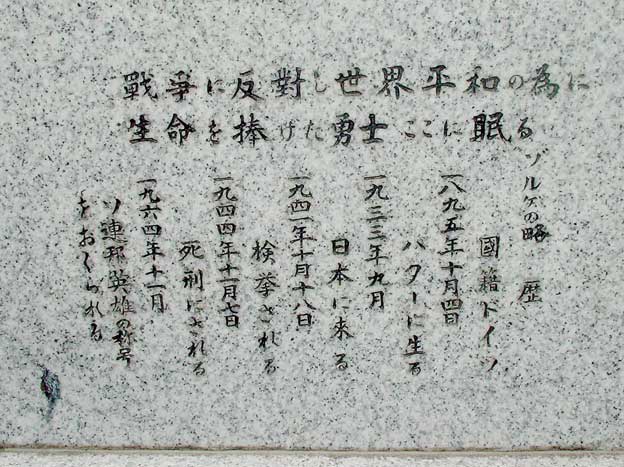 戰爭に反對し世界平和の為に
生命を捧げた勇士ここに眠る
ゾルゲの略歴
國籍ドイツ
一八九五年十月四日
バクーに生る
一九三三年九月
日本に来る
一九四一年十月十八日
検挙される
一九四四年十一月七日
死刑にされる
一九六四年十一月
ソ連邦英雄の称号
をおくられる